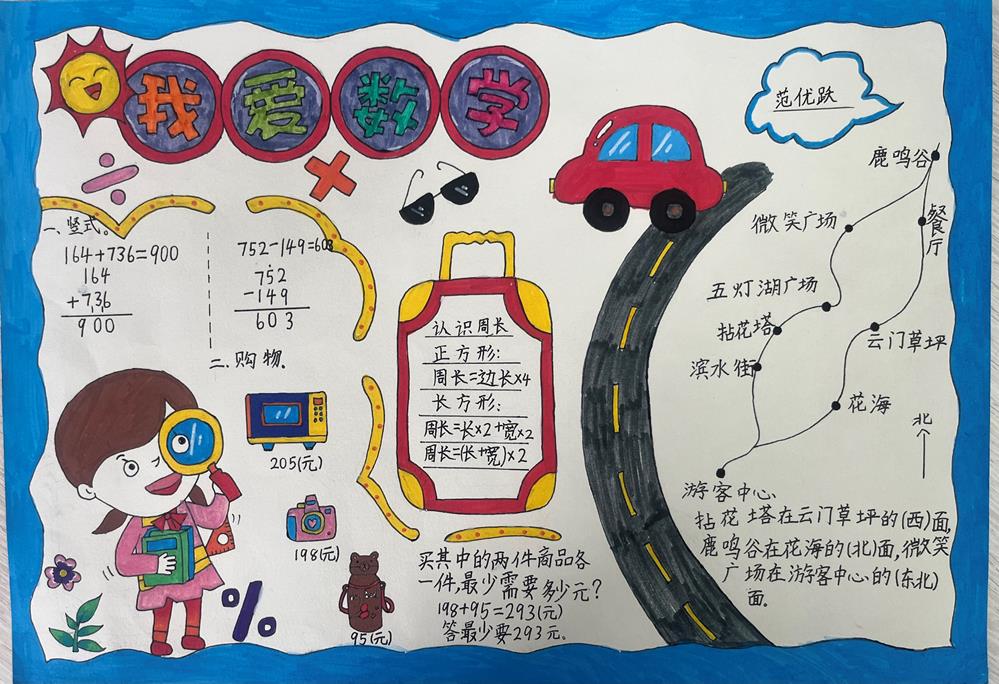 我爱数学
范优跃
一、竖式。
164+736=900
164
+736
900
752-149=603
752
-149
603
二.购物.
205(元)
198(元)
95(元)
买其中的两件商品各
一件,最少需要多少元?
198+95=293(元)
答最少要293元.
认识周长
正方形:
周长=边长×4
长方形:
周长=长×2+宽×2
周长=(长+宽)×2
鹿鸣谷
餐厅
微笑广场
五灯湖广场
拈花塔
云门草坪
滨水街
花海
北
游客中心
拈花塔在云门草坪的(西)面,
鹿鸣谷在花海的(北)面,微笑
广场在游客中心的(东北)
面.